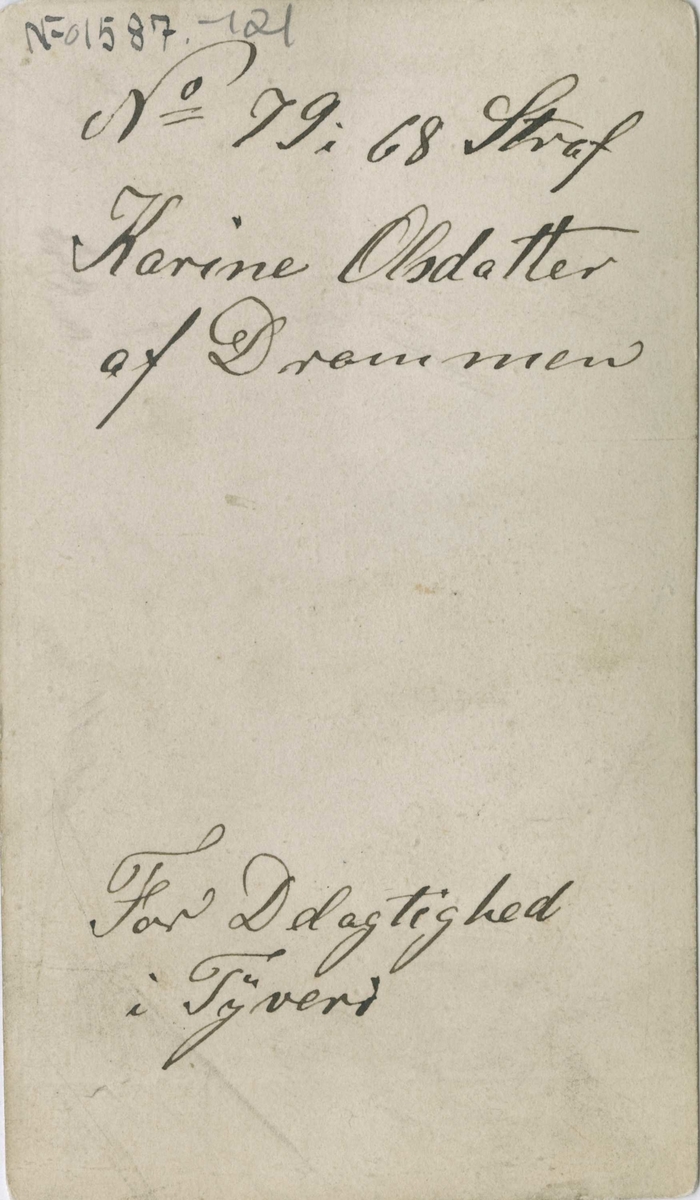 NF.01587.-121
No 79 i 68 Straf
Karine Olsdatter
af Drammen
For Ddagtighed
i Tÿveri